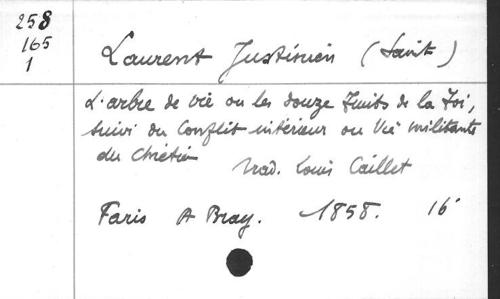 258
165
1
Laurent Justinien (Saint)
L'arbre de vie ou les douze fruits de la Foi,
suivi du Conflit intérieur ou Vie militante
du Chrétien
trad. Louis Caillet
Paris A Bray. 1858. 16°